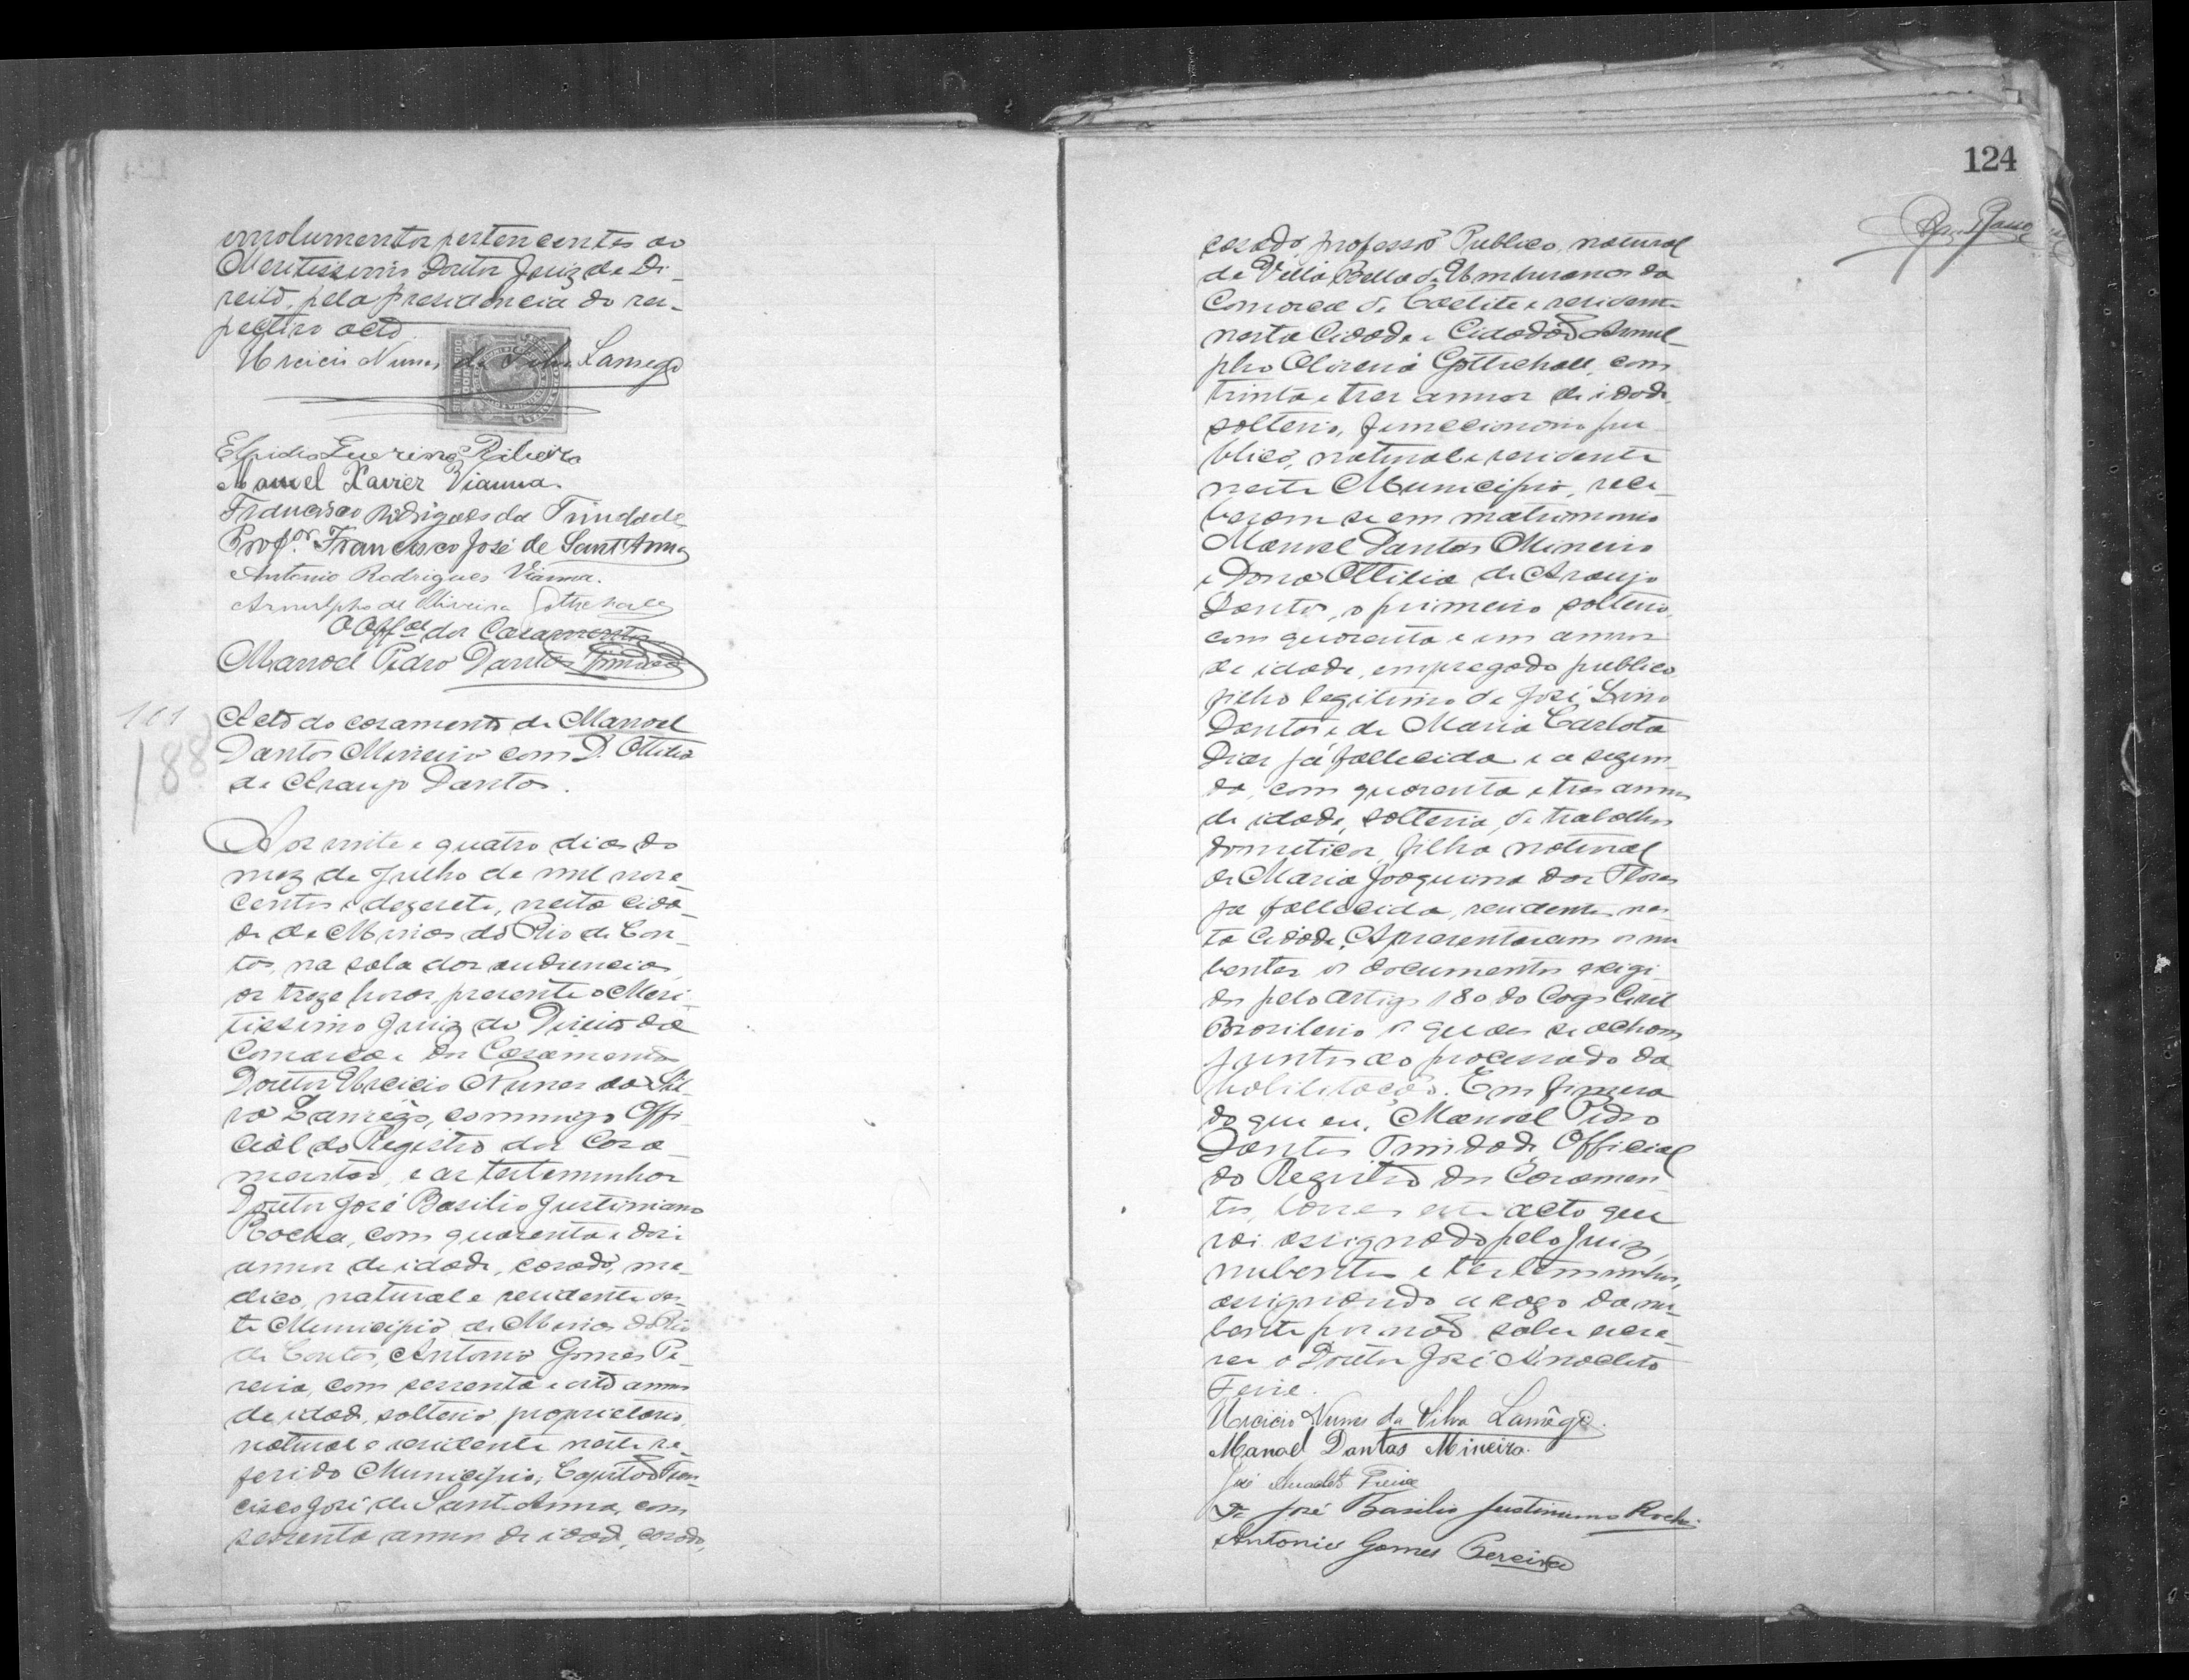 emolumentos pertencentes ao
Meritissimo Doutor Juiz de Di-
reito, pela presidencia do res-
pectivo acto.
Urcicio Nunes da Silva Lamego
Elpidio Guerino Ribeiro
Manoel Xavier Vianna.
Francisco Rodrigues da Trindade
Prof.or Francisco José de Sant'Anna
Antonio Rodrigues Vianna.
Arnulpho de Oliveira Gottschall
O Offal dos Casamentos
Manoel Pedro Dantas Trindade
188
Acto do casamento de Manoel
Dantas Mineiro com D. Ottilia
de Araujo Dantas.
Aos vinte e quatro dias do
mez de Julho de mil nove
centos e dezesete, nesta cida-
de de Minas do Rio de Con-
tas, na sala das audiencias,
as treze horas, presente o Meri-
tissimo Juiz de Direito da
Comarca e dos Casamentos
Doutor Urcicio Nunes da Sil-
va Lamêgo, commigo Offi-
cial do Registro dos Casa-
mentos, e as testemunhas
Doutor José Basilio Justiniano
Rocha, com quarenta e dois
annos de idade, casado, me-
dico, natural e residente des-
te Municipio de Minas do Rio
de Contas, Antonio Gomes Pe-
reira, com sessenta e oito annos
de idade, solteiro, proprietario,
natural e residente neste re-
ferido Municipio, Capitão Fran-
cisco José de Sant'Anna, com
sessenta annos de idade, casado,
124
casado, professor Publico, natural
da Villa Bella de Umburanas da
Comarca de Caetité e residente
nesta Cidade e Cidadão Arnul-
pho Oliveira Gottschall, com
trinta e tres annos de idade,
solteiro, funccionario pu-
blico, natural e residente
neste Municipio, rece-
beram-se em matrimonio
Manoel Dantas Mineiro
e Dona Ottilia de Araujo
Dantas, o primeiro solteiro,
com quarenta e um annos
de idade, empregado publico,
filho legitimo de José Lino
Dantas e de Maria Carlota
Dias já fallecida e a segun-
da, com quarenta e tres annos
de idade, solteira, de trabalhos
domesticos, filha natural
de Maria Joaquina das Flores
já fallecida, residentes nes-
ta Cidade. Apresentaram os nu-
bentes os documentos exigi-
dos pelo artigo 180 do Cogo Civil
Brasileiro os quaes se acham
juntos ao processado da
habilitação. Em firmeza
do que eu, Manoel Pedro
Dantas Trindade, Official
do Registro dos Casamen-
tos, lavrei este acto que
vai assignado pelo Juiz,
nubentes e testemunhas,
assignando a rogo da nu-
bente por não saber escre-
ver o Doutor José Anacleto
Freire.
Urcicio Nunes da Silva Lamêgo.
Manoel Dantas Mineiro.
José Anacleto Freire
Dr José Basilio Justiniano Rocha.
Antonio Gomes Pereira